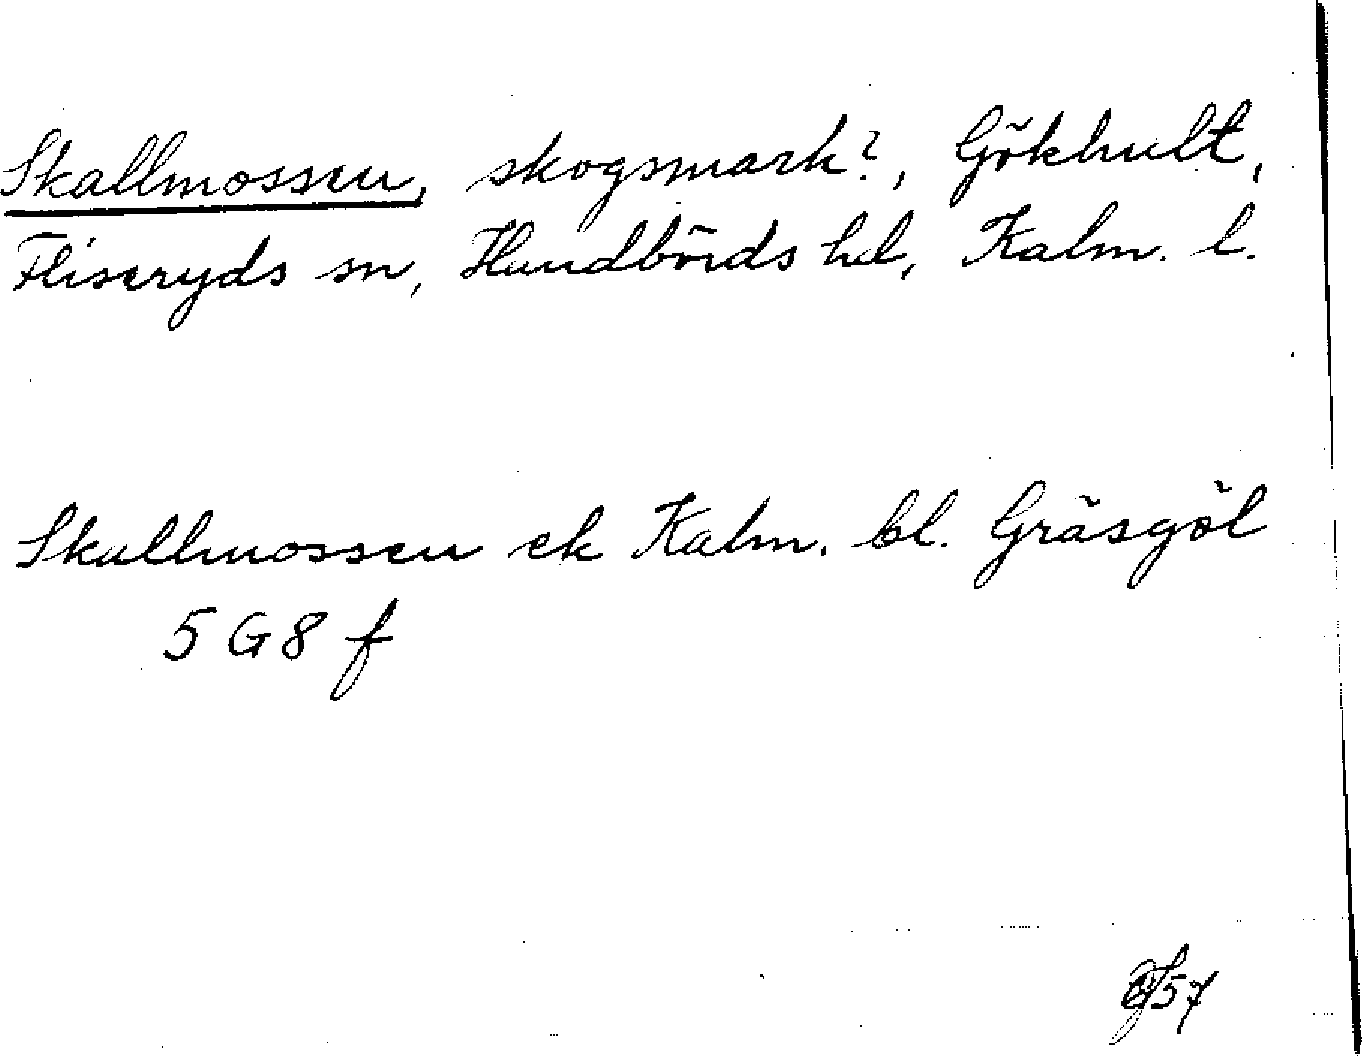 Skallmossen, skogsmark?, Gökhult,
Fliseryds sn, Handbörds hd, Kalm. l.
Skallmossen ek Kalm. bl. Gräsgöl
5 G 8 f
57